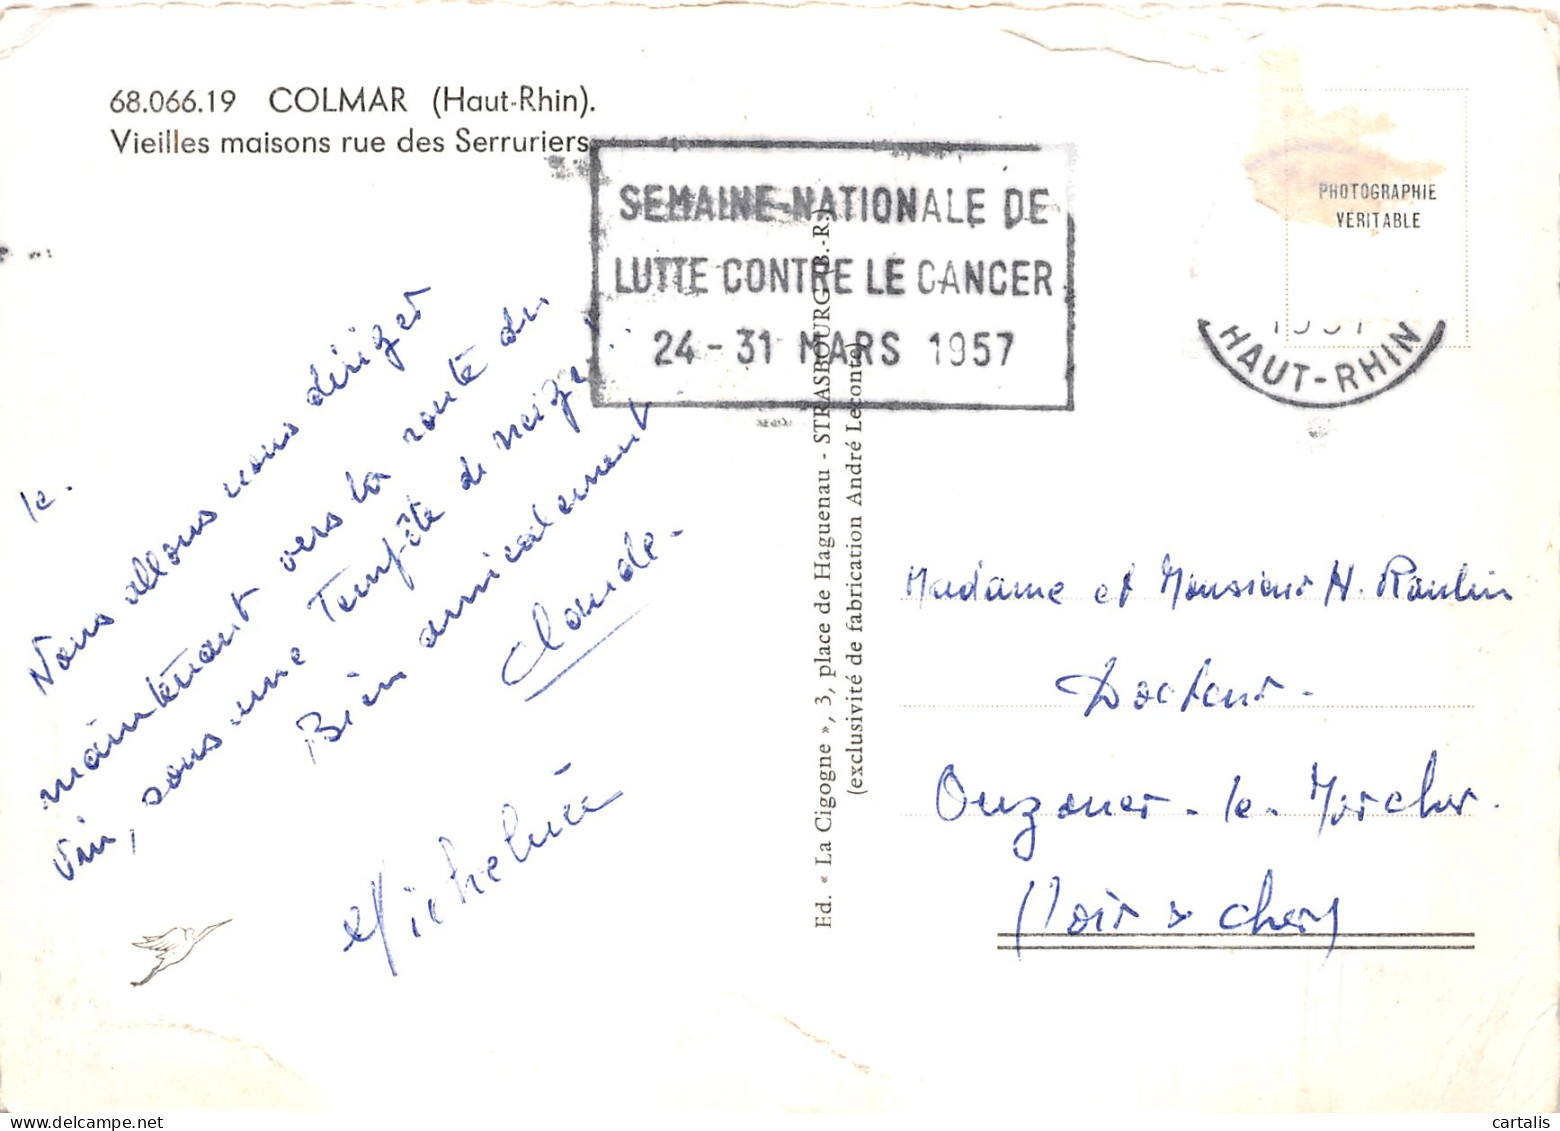 68.066.19 COLMAR (Haut-Rhin).
Vieilles maisons rue des Serruriers
SEMAINE NATIONALE DE
LUTTE CONTRE LE CANCER
24-31 MARS 1957
PHOTOGRAPHIE
VÉRITABLE
1957
HAUT-RHIN
le.
Nous allons nous diriger
maintenant vers la route du
Vin, sous une Tempête de neige!
Bien amicalement
Claude.
Micheline
Ed. « La Cigogne », 3, place de Haguenau - STRASBOURG (B.-R.)
(exclusivité de fabrication André Leconte)
Madame et Monsieur H. Raulin
Docteur.
Ouzouer-le-Marché.
(Loir & Cher)
cartalis